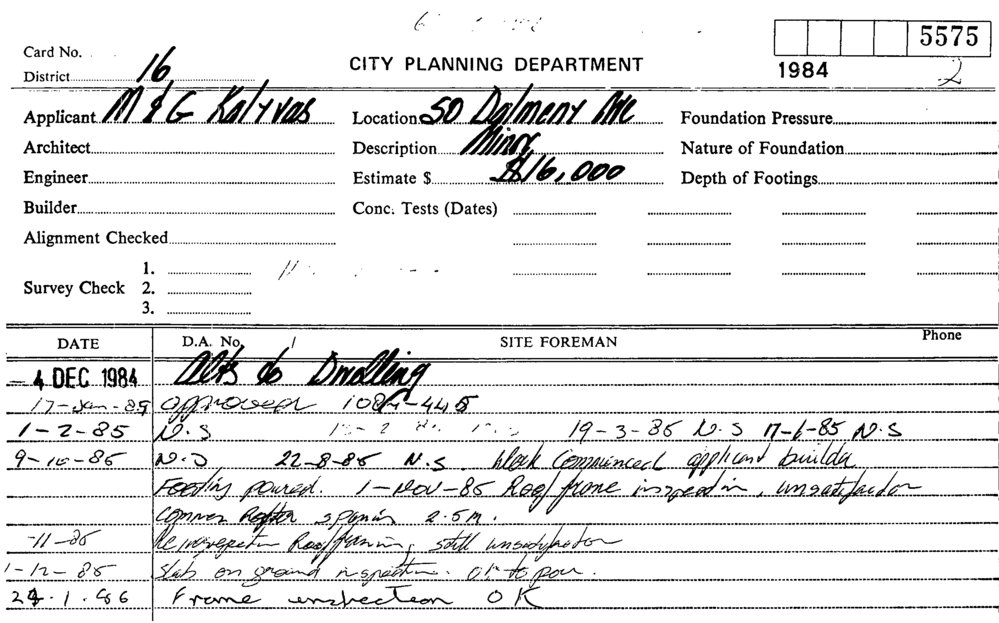 5575
Card No.
District 16
CITY PLANNING DEPARTMENT
1984
2
Applicant M & G Kalyvas
Location 50 Dalmeny Ave
Foundation Pressure
Architect
Description Minor
Nature of Foundation
Engineer
Estimate $ $16,000
Depth of Footings
Builder
Conc. Tests (Dates)
Alignment Checked
Survey Check
1.
2.
3.
DATE
D.A. No.
SITE FOREMAN
Phone
- 4 DEC 1984 Alts to Dwelling
17-Jan-85 approved
1-2-85 N.S 19-3-85 N.S 17-6-85 N.S
9-10-85 N.S 22-8-85 N.S. Work commenced applicant builder
Footing poured. 1-Nov-85 Roof frame inspection, unsatisfactory
common Rafter spanning 2.5m.
-11-85 Reinspection Roof framing, still unsatisfactory
1-12-85 Slab on ground inspection. OK to pour.
24.1.86 Frame inspection OK